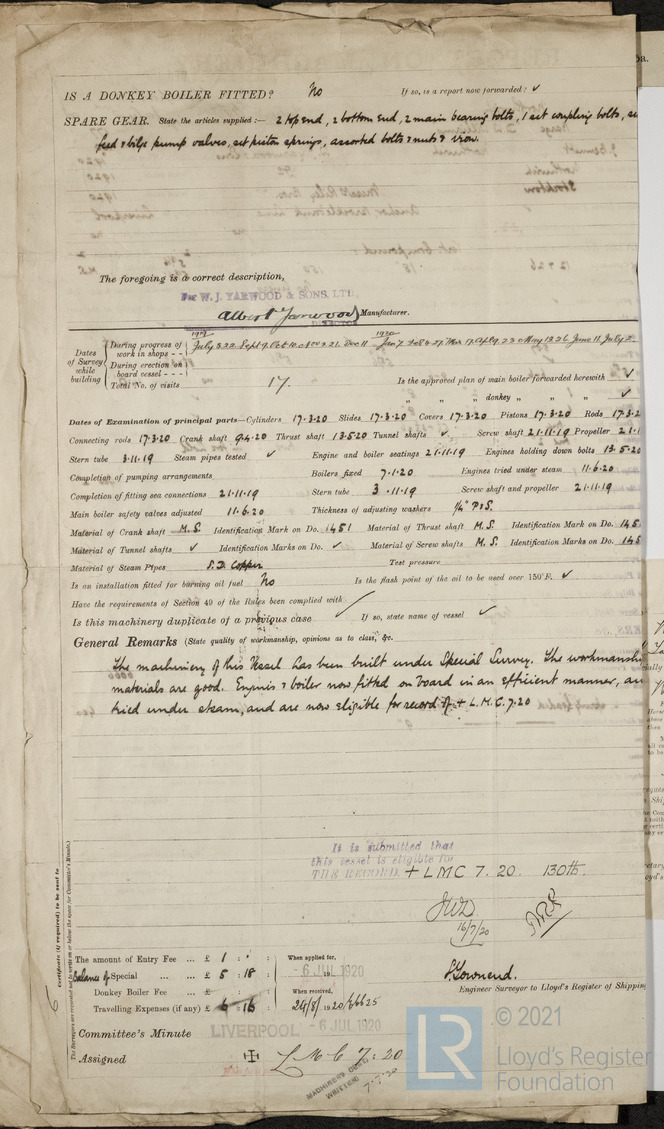 IS A DONKEY BOILER FITTED? No If so, is a report now forwarded: ✓
SPARE GEAR. State the articles supplied:— 2 top end, 2 bottom end, 2 main bearing bolts, 1 set coupling bolts,
feed & bilge pump valves, set piston springs, assorted bolts & nuts & iron.
The foregoing is a correct description,
For W. J. YARWOOD & SONS, LTD.
Albert Yarwood Manufacturer.
DIRECTOR
Dates of Survey while building
1919 1920
During progress of work in shops - - July 3.22 Sept 9. Oct 10. Nov 3.21. Dec 11. Jan 7. Feb 27. Mar 17. Apl 9. 23 May 13.26 June 11. July 2.
During erection on board vessel - - -
Total No. of visits 17. Is the approved plan of main boiler forwarded herewith ✓
" " " donkey " " " ✓
Dates of Examination of principal parts—Cylinders 17.3.20 Slides 17.3.20 Covers 17.3.20 Pistons 17.3.20 Rods 17.3.2
Connecting rods 17.3.20 Crank shaft 9.4.20 Thrust shaft 13.5.20 Tunnel shafts ✓ Screw shaft 21.11.19 Propeller 21.1
Stern tube 3.11.19 Steam pipes tested ✓ Engine and boiler seatings 21.11.19 Engines holding down bolts 13.5.20
Completion of pumping arrangements Boilers fixed 7.1.20 Engines tried under steam 11.6.20
Completion of fitting sea connections 21.11.19 Stern tube 3.11.19 Screw shaft and propeller 21.11.19
Main boiler safety valves adjusted 11.6.20 Thickness of adjusting washers 1/4" P & S.
Material of Crank shaft M.S. Identification Mark on Do. 1451 Material of Thrust shaft M.S. Identification Mark on Do. 145
Material of Tunnel shafts ✓ Identification Marks on Do. ✓ Material of Screw shafts M.S. Identification Marks on Do. 145
Material of Steam Pipes S.D. Copper Test pressure
Is an installation fitted for burning oil fuel No Is the flash point of the oil to be used over 150°F. ✓
Have the requirements of Section 49 of the Rules been complied with
Is this machinery duplicate of a previous case If so, state name of vessel ✓
General Remarks (State quality of workmanship, opinions as to class, &c.
The machinery of this Vessel has been built under Special Survey. The workmanshi
materials are good. Engines & boiler now fitted on board in an efficient manner, an
tried under steam, and are now eligible for record of + L.M.C. 7.20
It is submitted that
this vessel is eligible for
THE RECORD. + LMC 7. 20. 130 lb.
16/7/20
Certificate (if required) to be sent to
The Surveyors are requested not to write on or below the space for Committee's Minute.
The amount of Entry Fee ... £ 1 : When applied for,
Balance of Special ... £ 5 : 18 - 6 JUL 1920
Donkey Boiler Fee ... £ When received,
Travelling Expenses (if any) £ 6 : 16 24/8/1920
P. Townend.
Engineer Surveyor to Lloyd's Register of Shipping
Committee's Minute LIVERPOOL - 6 JUL 1920
Assigned + L M C 7.20
MACHINERY CERT.
WRITTEN 7.7.20
LR © 2021
Lloyd's Register
Foundation